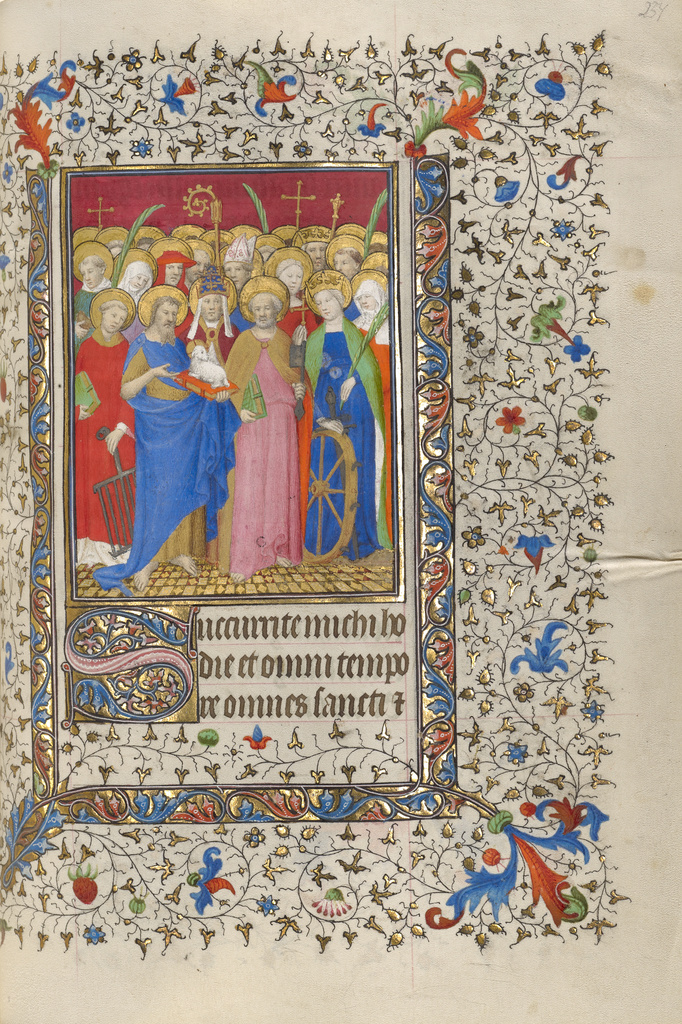 234
Succurrite michi ho
die et omni tempo
re omnes sancti ⁊